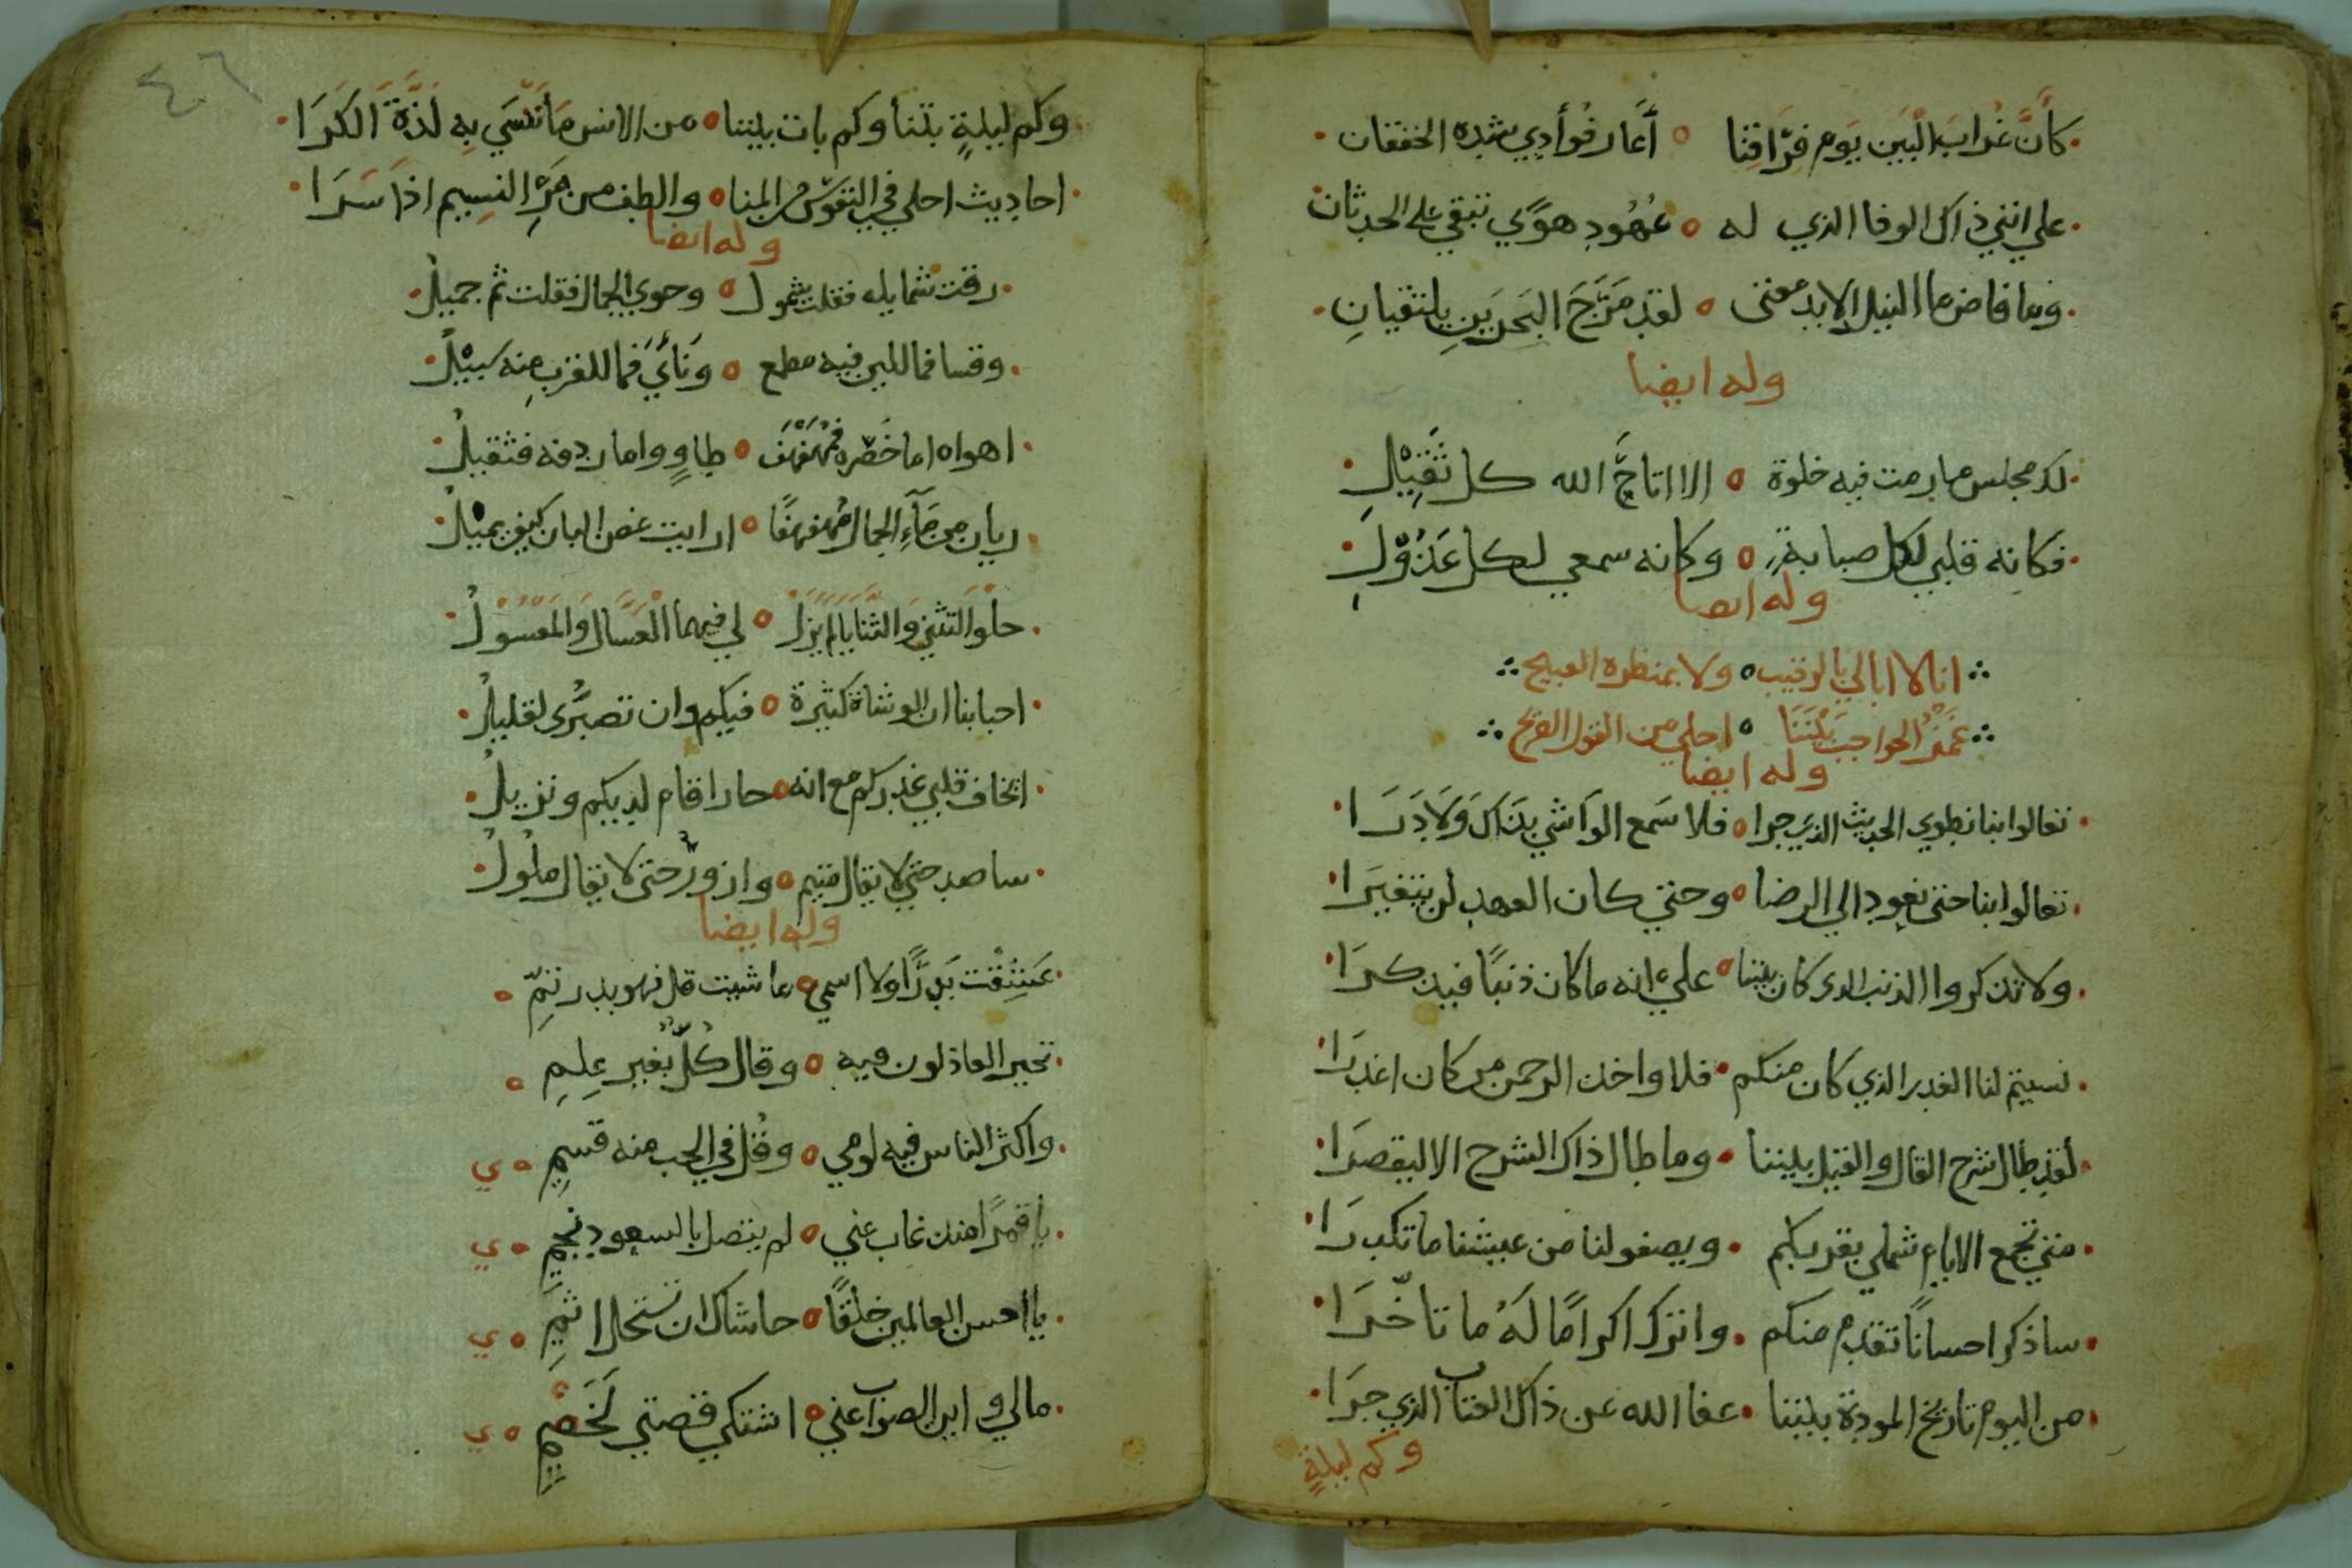 كَأنَّ غُرابَ الْبَين يَوم فِرَاقِنا ه أعَار فوُأدِي شِده الخفقان
علي انني ذاك الوفا الذي له ه عُهُود هوًي تبقي علي الحدثان
وما فاض ما النيل الا بدمعتى ه لقد مَرَجَ البَحرَينِ يلتقيانِ
وله ايضا
لك مجلس ما رمت فيه خلوة ه الا اتاحَّ الله كل ثَقِيْلِ
فكانِه قلبي لكل صبابةٍ ه وكانه سمعي لكل عَذُوْلِ
وله ايضا
انا لا ابالي بالرقيب ه ولا بمنظره القبيح
غَمْزُ الحواجب بَيْنَنَا ه احلي من القول الصريح
وله ايضا
تعالوا بنا نطوي الحديث الذي جرا ه فلا سَمع الوَاشي بذَاك وَلَا دَرَا
تعالوا بنا حتى نعود الي الرضا ه وحتي كان العهد لن يتغيَرا
ولا تذكروا الذنب الدى كان بيننا ه عليَ انه ما كان ذنبًا فيذكرَا
نسيتم لنا الغدر الذي كان منكم فلا واخذ الرحمن من كان اغدرَا
لقد طال شرح القال والقيل بيننا وما طال ذاك الشرح الا ليقصرَا
متي تجمع الايام شملي بقربكم ويصفو لنا من عيشنا ما تكدرَا
ساذكر احسانًا تقدم منكم واترك اكرامًا لَهُ ما تاخّرَا
من اليوم تاريخ المودة بيننا عفا الله عن ذاك العتاب الذي جرَا
وكم ليلةٍ
٤٦
وكم ليلةٍ بتنا وكم بات بيننا ه من الانس مَا نَنْسَي بِهِ لَذَّةَ الكَرَا
احاديث احلي في النفوس من المنا ه والطف من مَرِّ النسِيم اذا سَرَا
وله ايضا
رقت شمايله فقلت شمول ه وحوي الجمال فقلت ثم جميلُ
وقسا فما للين فيه مطمع ه وَنأيَ فما للقرب مِنه سَبيْلُ
اهواه اما خَصْره فمُهَفْهَف ه طاوٍ واما ردفه فثقيلُ
ريان من مَآءِ الجمال مُهفهفًا ه ارايت غصن البان كيف يميْلُ
حلْو التَثني وَالثَّنايَا لَم يَزَلْ ه لي فيهما العَسَّال وَالمَعْسُوْلُ
احبابنا ان الوشاة كثيرة ه فيكم وان تصبّرُى لقليلُ
ايخاف قلبي غدركم مع انه ه جار اقام لديكم ونزيلُ
ساصد حتي لا يقال متيم ه وازورُ حتى لا يقال ملولُ
وله ايضا
عَشِقْت بَدرًا ولا اسمي ه ما شيت قل فهو بدر تَمِّ ه
تحير العاذلون فيه ه وقال كُلّ بغير عِلِمِ ه
واكثر الناس فيه لومي ه وقُل في الحب منه قسمِ ه ي
يا قمرًا منذ غاب عني ه لم يتصل بالسعود نجمِ ه ي
يا احسن العالمين خلقًا ه حاشاك ان تستحل اثمِ ه ي
مالي واين الصواب عني ه اشتكي قصتي لَخَصْمِ ه ي